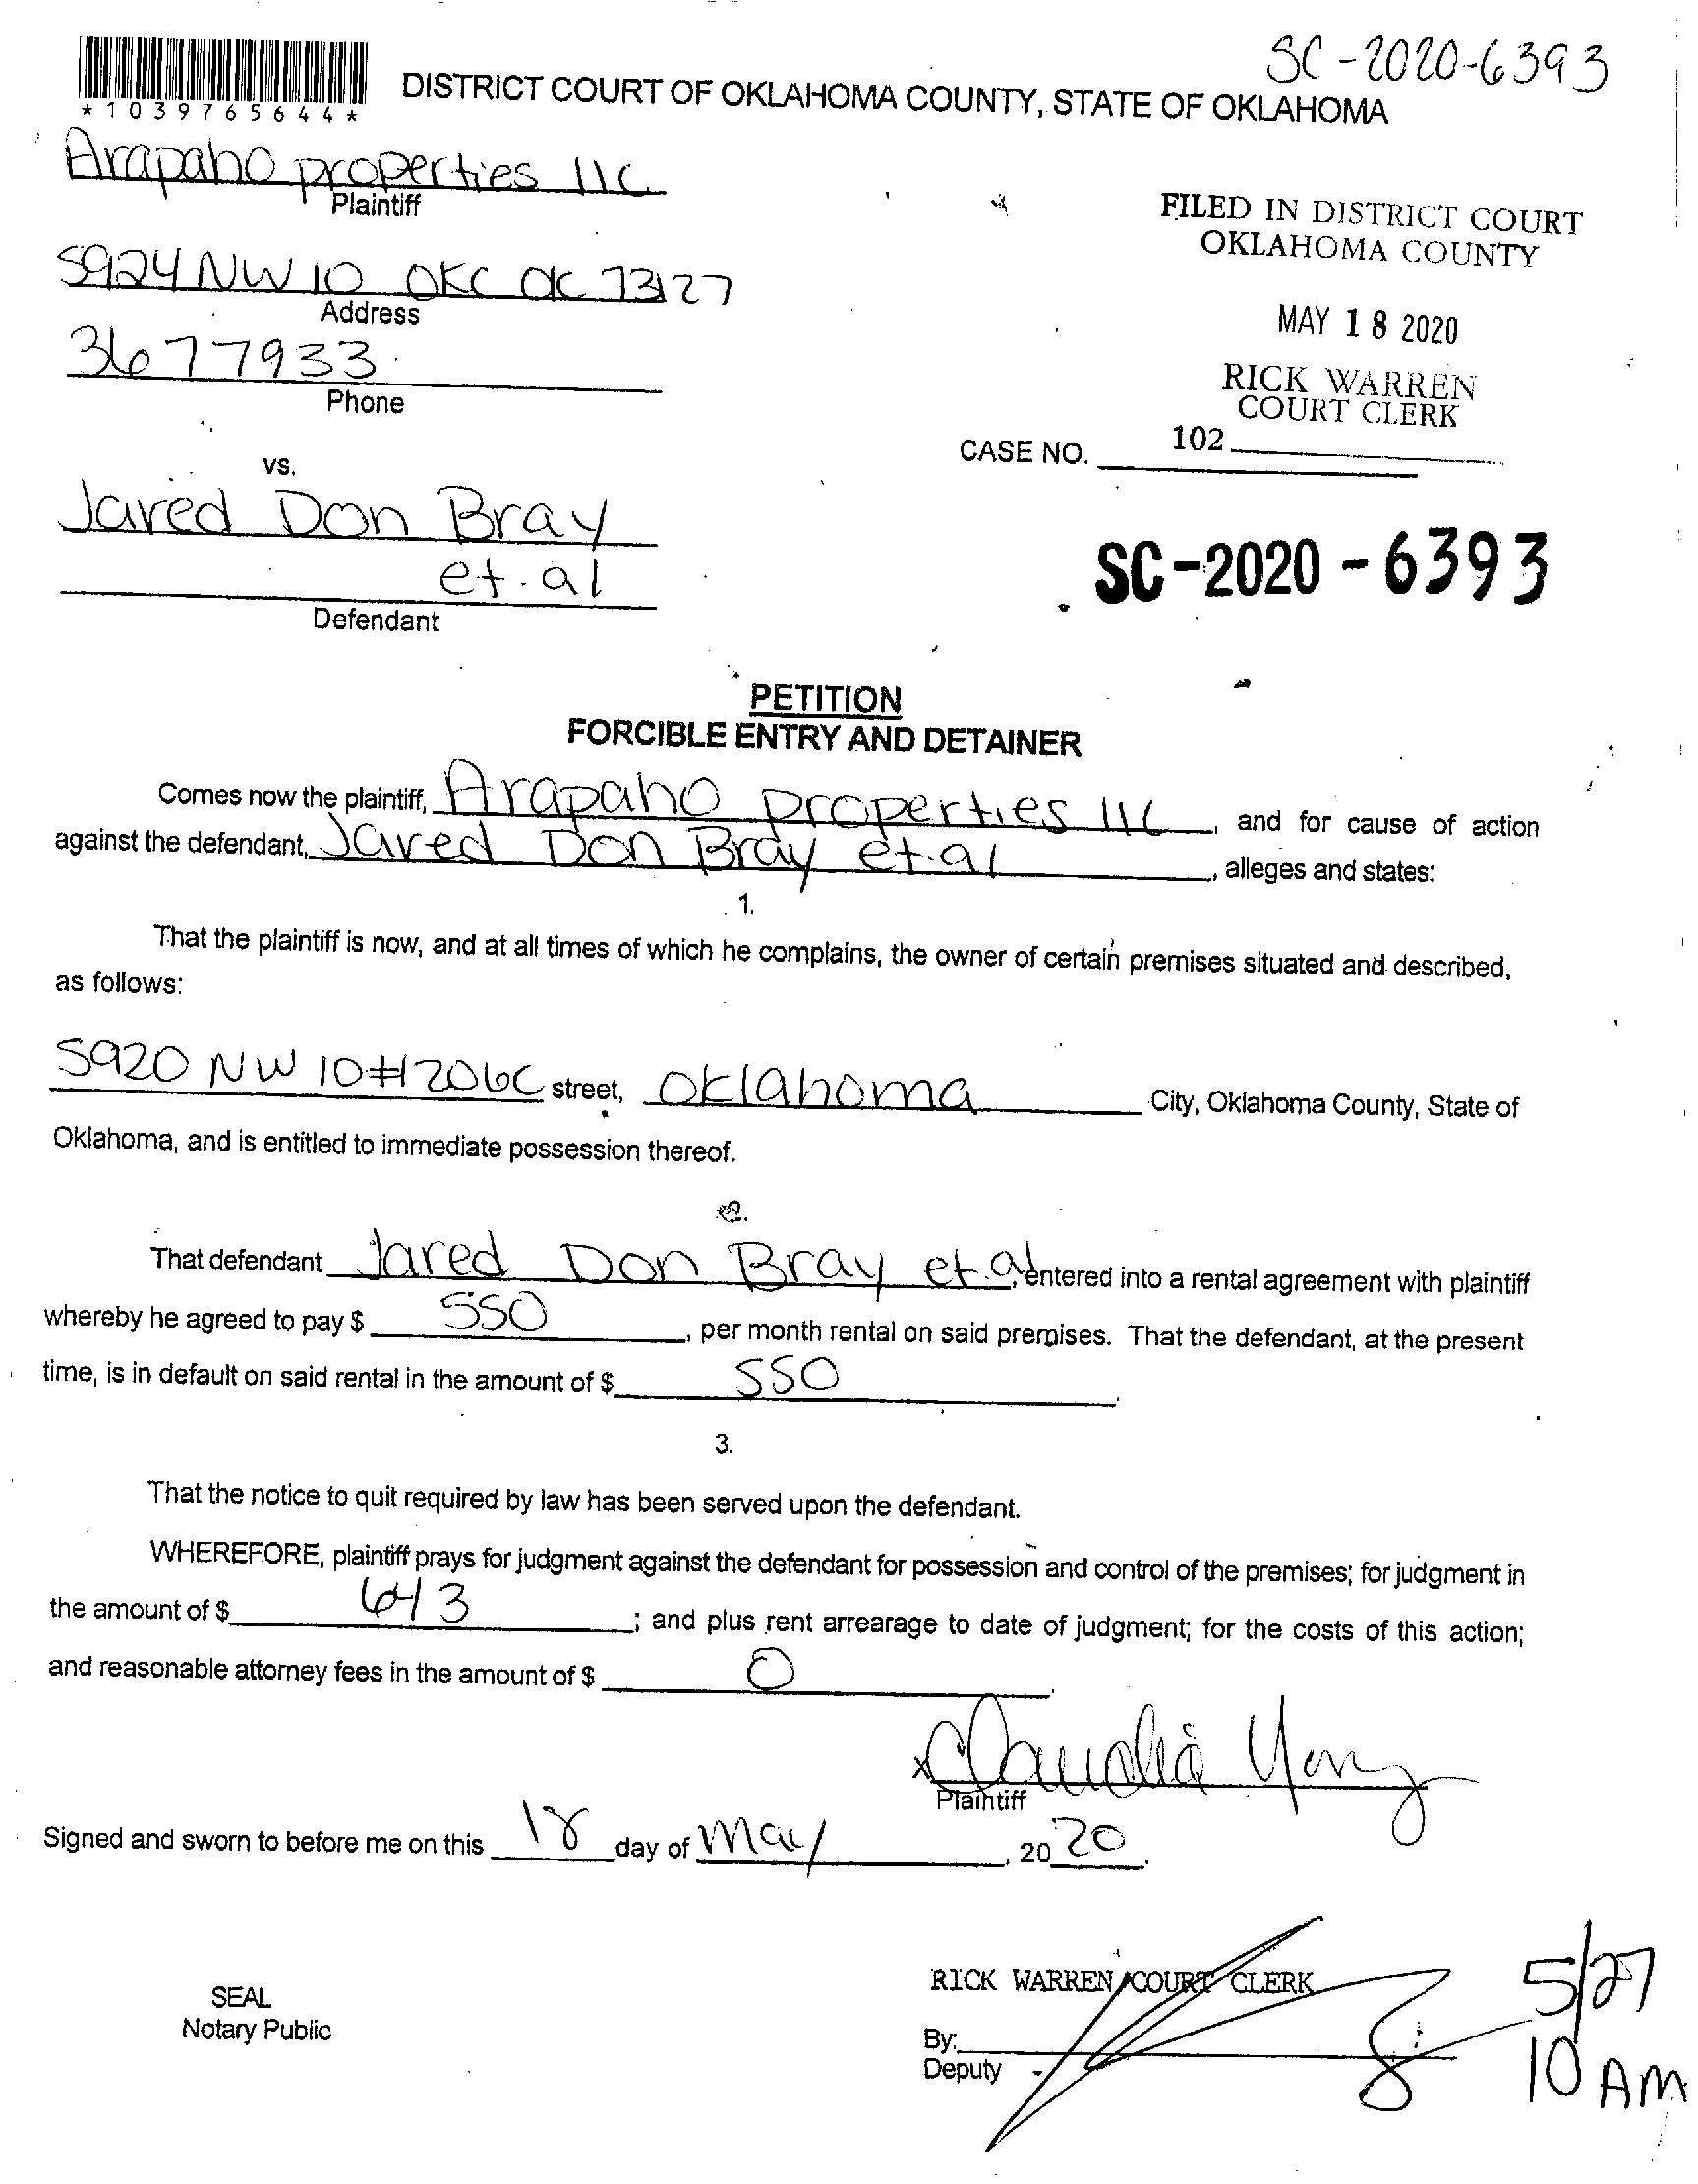 SC-2020-6393
*1039765644*
DISTRICT COURT OF OKLAHOMA COUNTY, STATE OF OKLAHOMA
Arapaho properties llc
Plaintiff
5924 NW 10 OKC OK 73127
Address
3677933
Phone
FILED IN DISTRICT COURT
OKLAHOMA COUNTY
MAY 18 2020
RICK WARREN
COURT CLERK
CASE NO. 102
vs.
Jared Don Bray
et.al
Defendant
SC-2020-6393
PETITION
FORCIBLE ENTRY AND DETAINER
Comes now the plaintiff, Arapaho properties llc, and for cause of action
against the defendant, Jared Don Bray et.al, alleges and states:
1.
That the plaintiff is now, and at all times of which he complains, the owner of certain premises situated and described,
as follows:
5920 NW 10 #206C street, Oklahoma City, Oklahoma County, State of
Oklahoma, and is entitled to immediate possession thereof.
2.
That defendant Jared Don Bray et.al, entered into a rental agreement with plaintiff
whereby he agreed to pay $ 550, per month rental on said premises. That the defendant, at the present
time, is in default on said rental in the amount of $ 550.
3.
That the notice to quit required by law has been served upon the defendant.
WHEREFORE, plaintiff prays for judgment against the defendant for possession and control of the premises; for judgment in
the amount of $ 643; and plus rent arrearage to date of judgment; for the costs of this action;
and reasonable attorney fees in the amount of $ 0.
x Claudia
Plaintiff
Signed and sworn to before me on this 18 day of May, 2020.
RICK WARREN, COURT CLERK
5/27
SEAL
Notary Public
By:
Deputy
10 AM